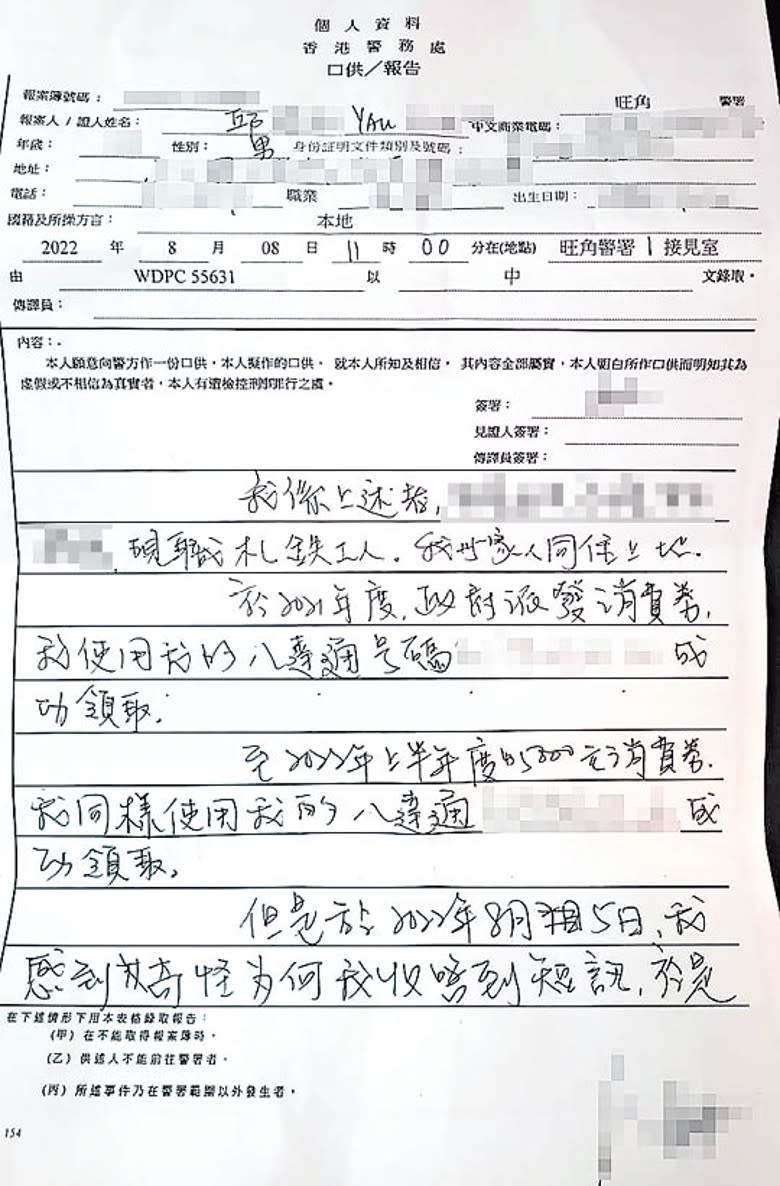 個人資料
香港警務處
口供／報告
報案簿號碼：
旺角 警署
報案人／證人姓名： 邱 YAU 中文商業電碼：
年歲： 性別： 男 身份証明文件類別及號碼：
地址：
電話： 職業 出生日期：
國籍及所操方言： 本地
2022 年 8 月 08 日 11 時 00 分在(地點) 旺角警署 1 接見室
由 WDPC 55631 以 中 文錄取。
傳譯員：
內容：-
本人願意向警方作一份口供。本人擬作的口供，就本人所知及相信，其內容全部屬實，本人明白所作口供而明知其為
虛假或不相信為真實者，本人有遭檢控刑事罪行之處。
簽署：
見證人簽署：
傳譯員簽署：
我係上述者，
現職札鉄工人。我与家人同住上址。
於2021年度，政府派發消費券，
我使用我的八達通号碼 成
功領取。
至2022年上半年度的5000元消費券，
我同樣使用我的八達通 成
功領取。
但是於2022年8月 5日，我
感到奇怪为何我收唔到短訊，於是
在下述情形下用本表格錄取報告：
(甲) 在不能取得報案簿時。
(乙) 供述人不能前往警署者。
(丙) 所述事件乃在警署範圍以外發生者。
154